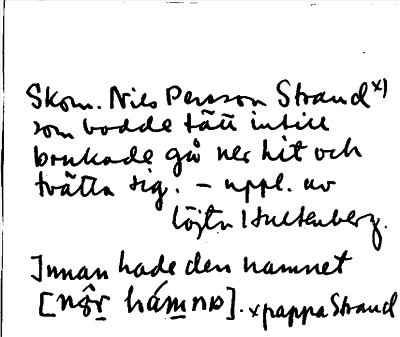 Skom. Nils Persson Strand x)
som bodde tätt intill
brukade gå ner hit och
tvätta sig. – uppl. av
löjtn Hultenberg.
Innan hade den namnet
[nǫ̂r hámnɒ]. x pappa Strand